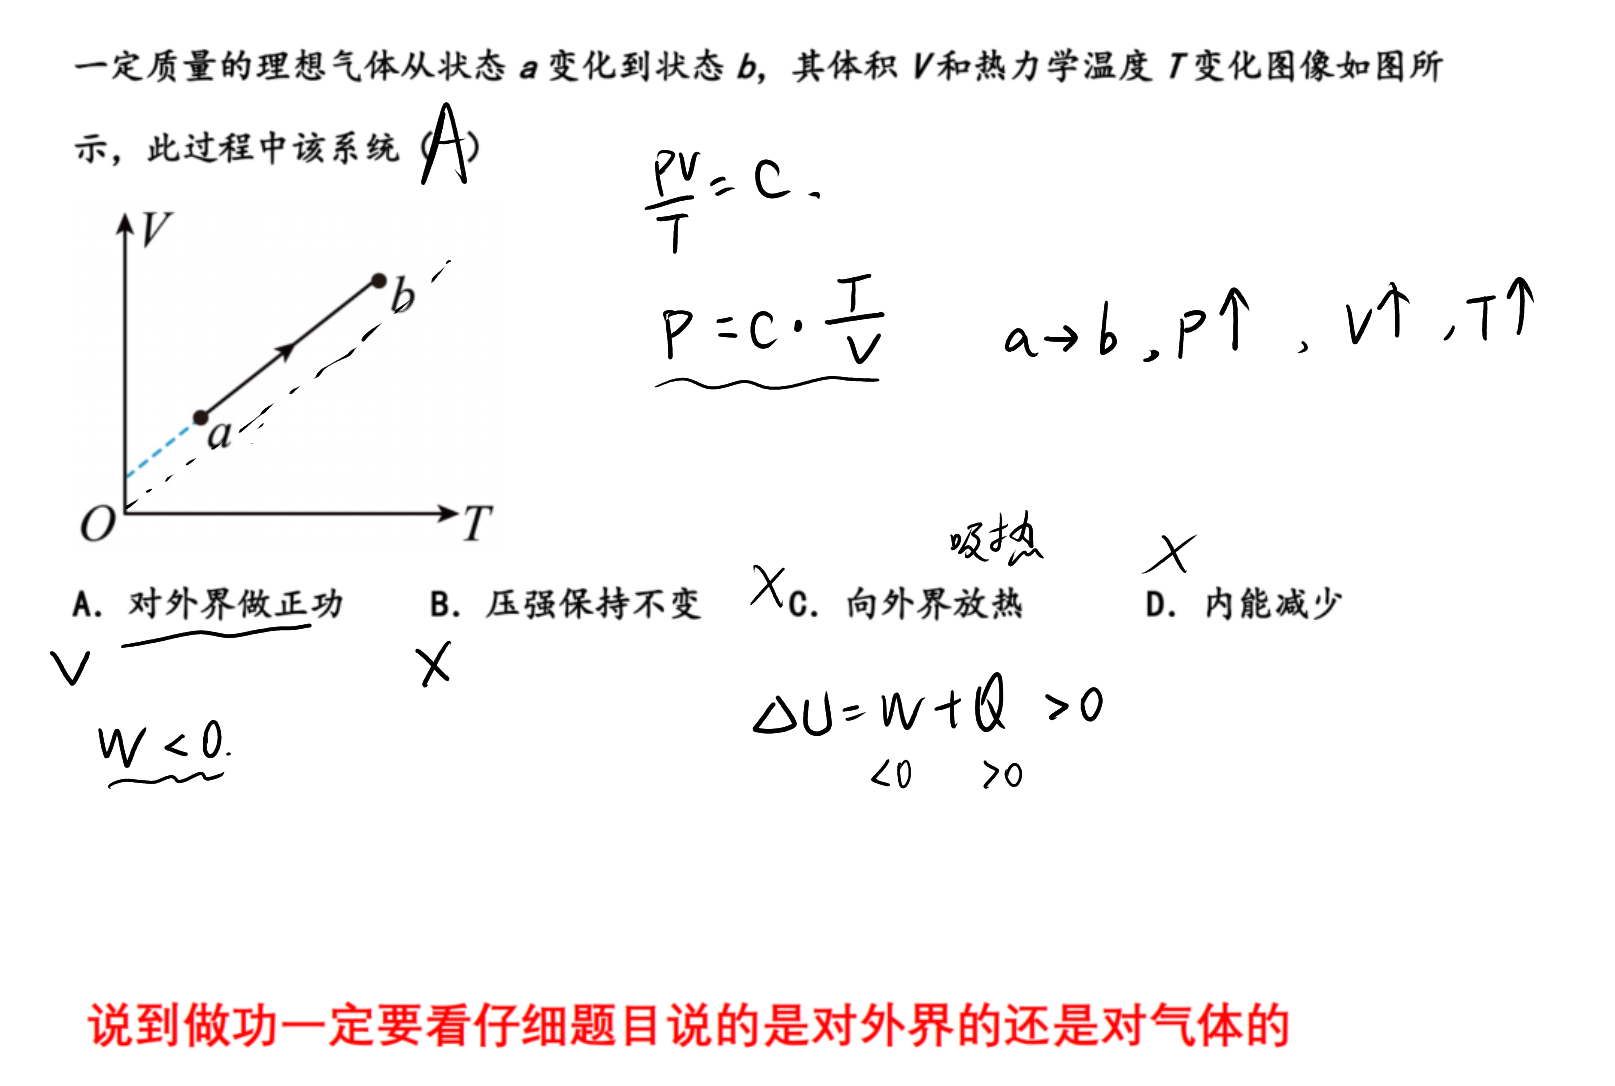 一定质量的理想气体从状态 a 变化到状态 b，其体积 V 和热力学温度 T 变化图像如图所
示，此过程中该系统（A）
PV/T = C.
V
b
a
O
T
P = C · T/V
a→b, P↑, V↑, T↑
吸热
X
X
A. 对外界做正功 B. 压强保持不变 C. 向外界放热 D. 内能减少
V
X
W<0.
ΔU = W + Q >0
<0 >0
说到做功一定要看仔细题目说的是对外界的还是对气体的